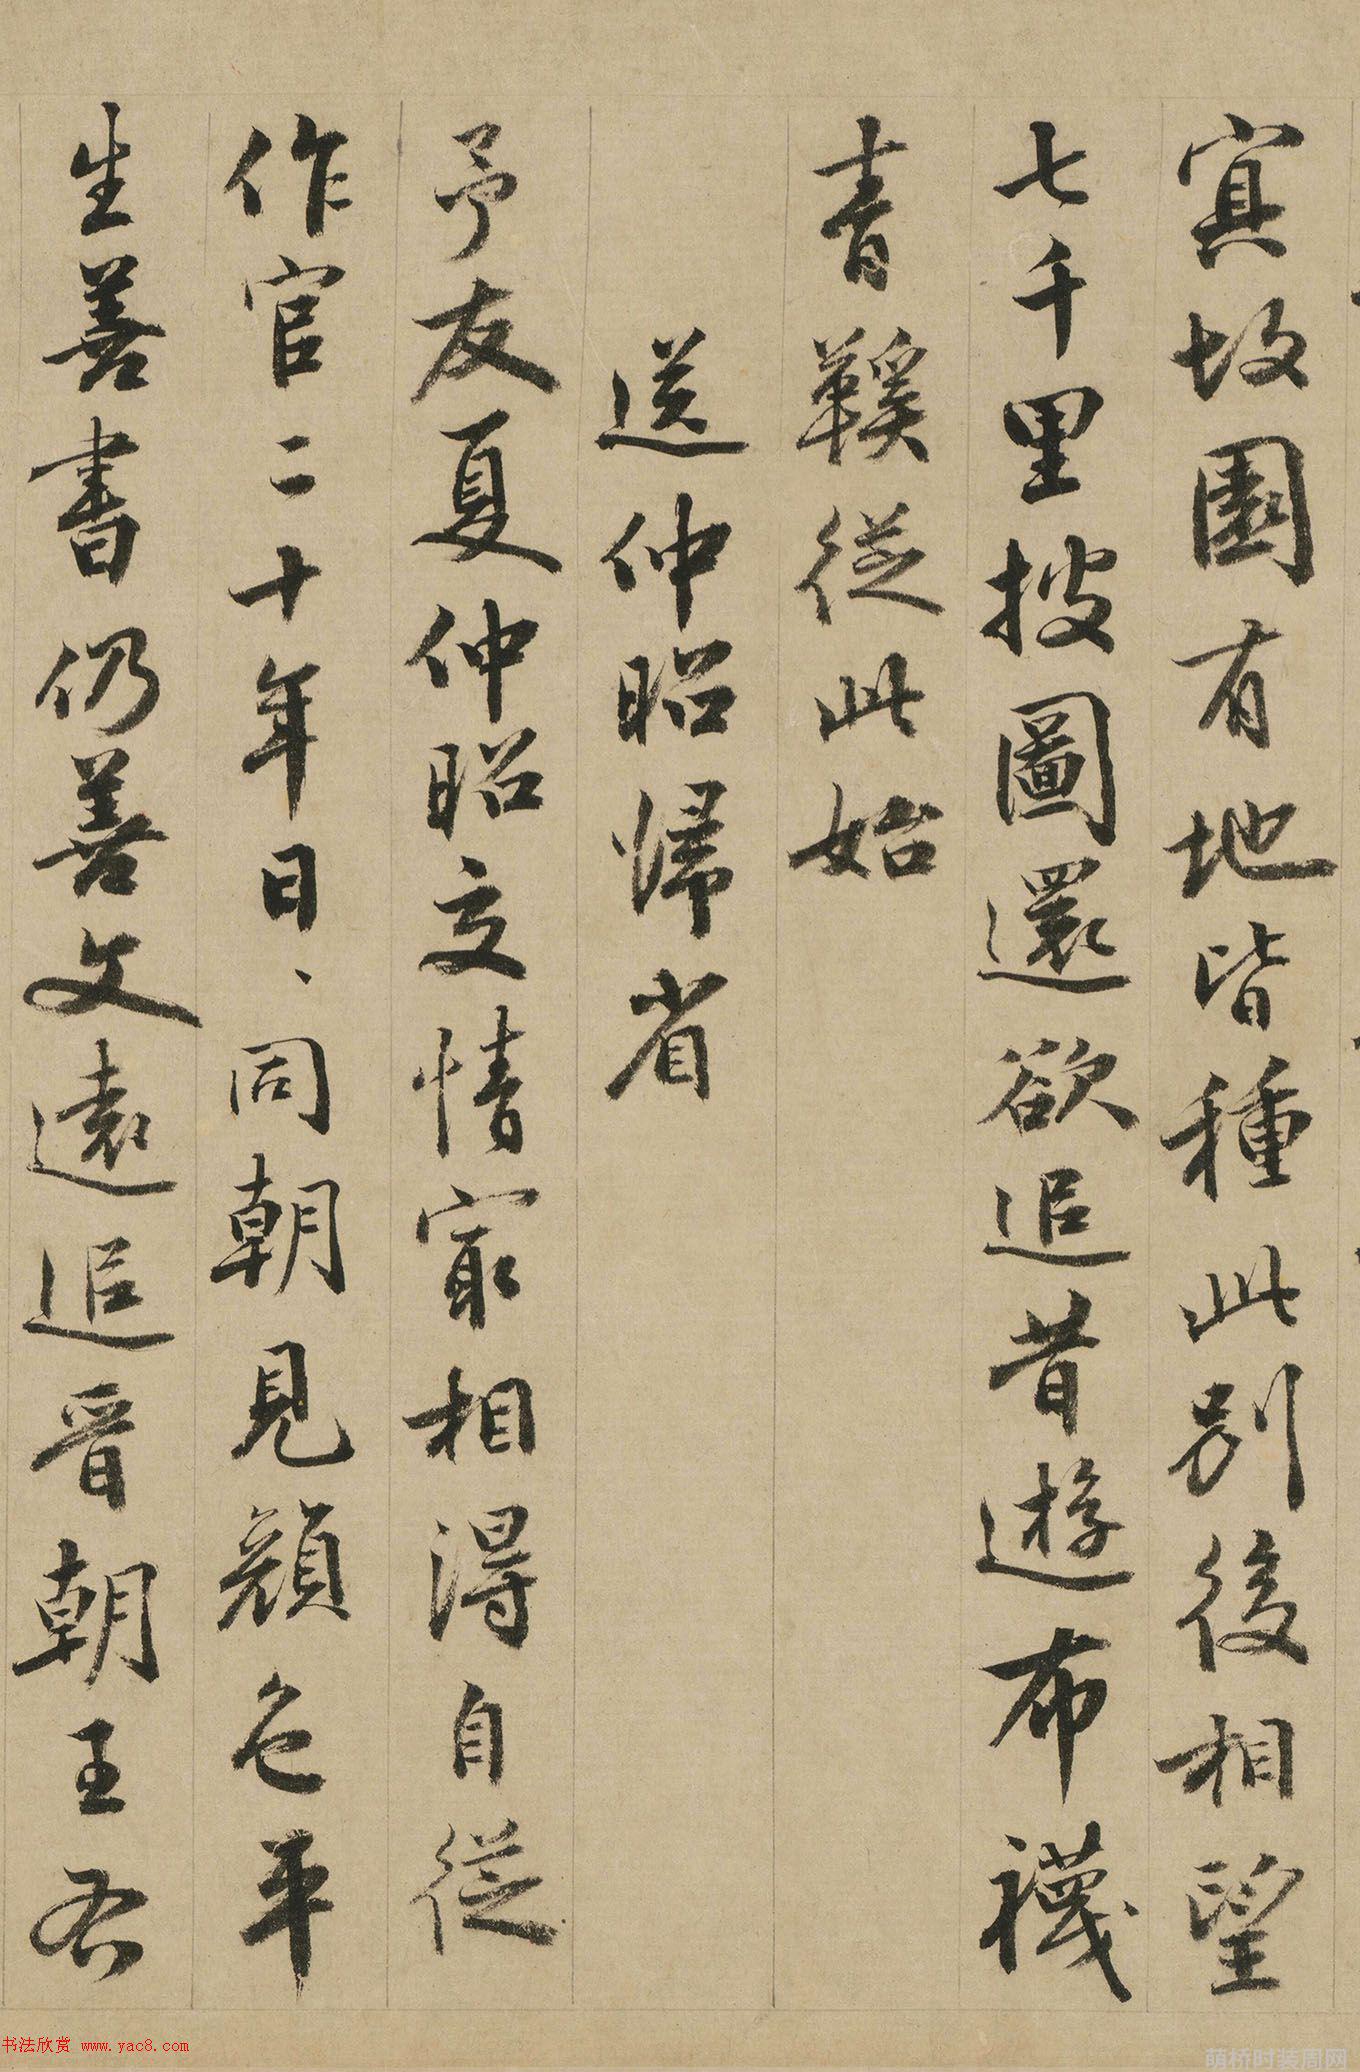 寘故園有地皆種此别後相望
七千里披圖還欲追昔遊布襪
青鞵從此始
送仲昭歸省
予友夏仲昭交情冣相得自從
作官二十年日、同朝見顔色平
生善書仍善文遠追晉朝王右
书法欣赏 www.yac8.com
萌桥时装周网